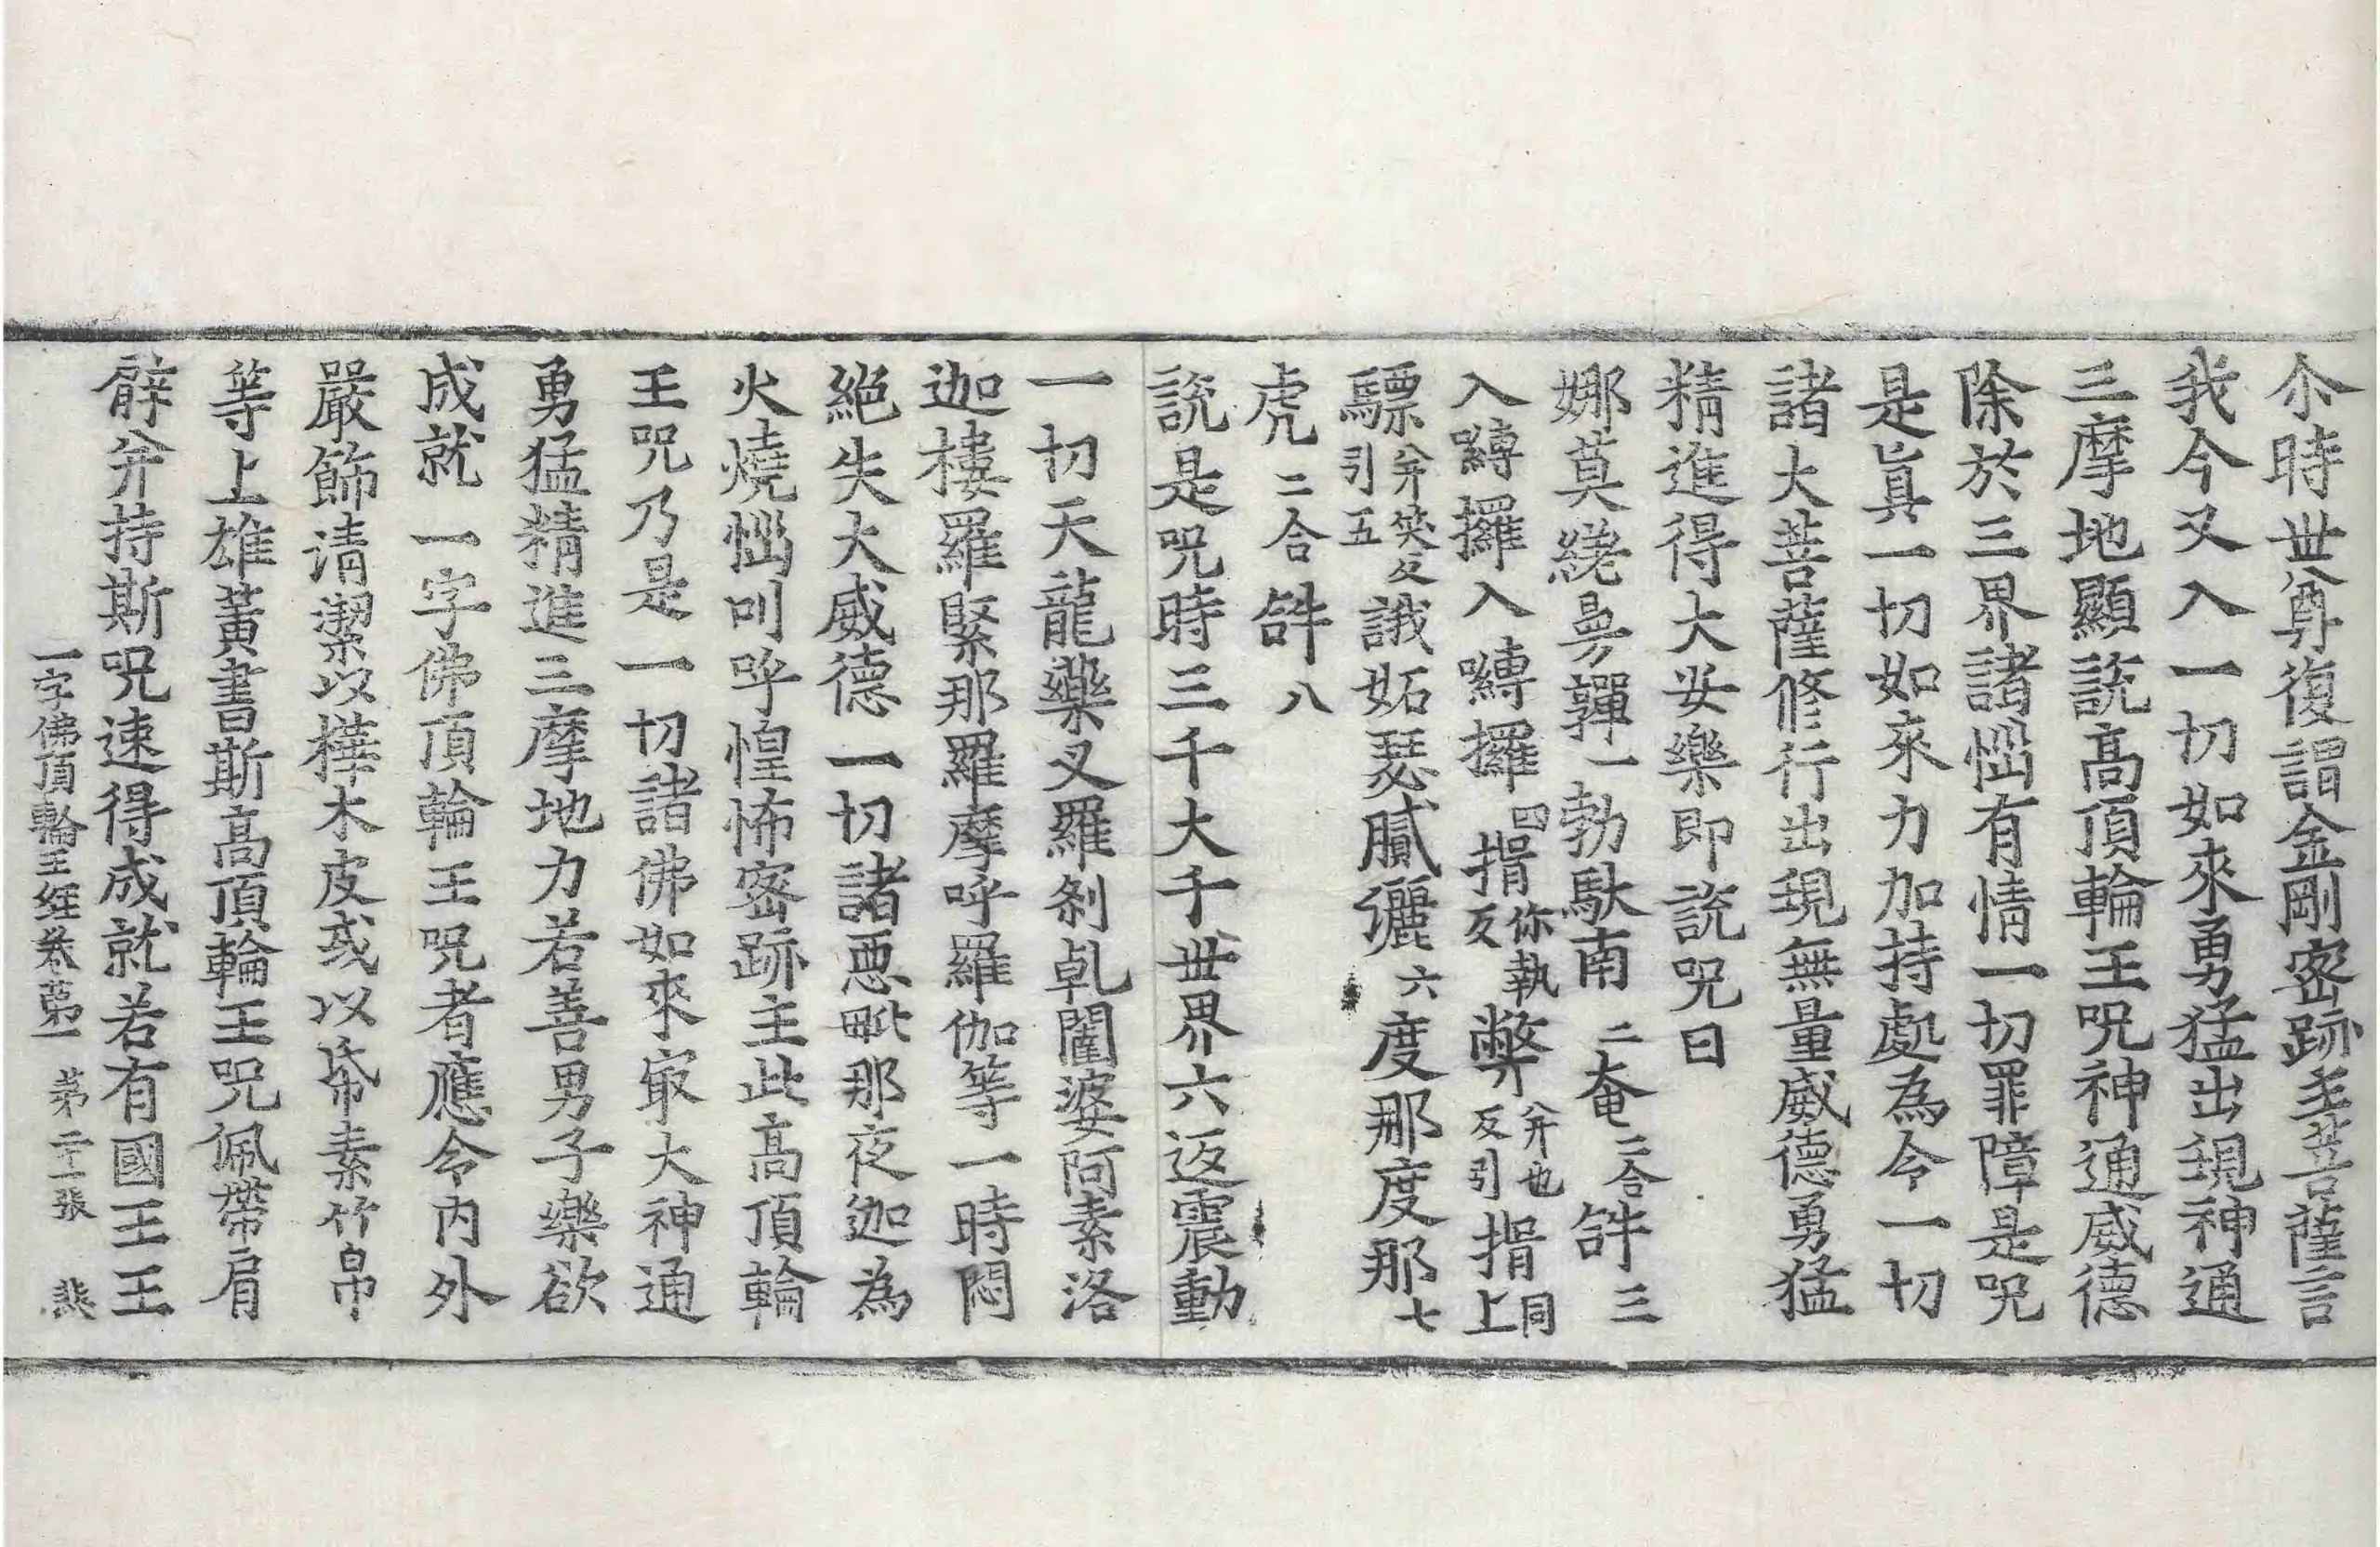 尒時世尊復謂金剛密跡主菩薩言
我今又入一切如來勇猛出現神通
三摩地顯說高頂輪王呪神通威德
除於三界諸惱有情一切罪障是呪
是眞一切如來力加持處為令一切
諸大菩薩修行出現無量威德勇猛
精進得大安樂即說呪曰
娜莫繞曼嚲一勃馱南二奄二合𤙖三
入嚩攞入嚩攞四揟你執反弊弁也反引揟同上
驃弁笑反引五誐妬瑟膩儷六度那度那七
虎二合𤙖八
說是呪時三千大千世界六返震動
一切天龍藥叉羅剎乹闥婆阿素洛
迦樓羅緊那羅摩呼羅伽等一時悶
絕失大威德一切諸惡毗那夜迦為
火燒惱叫呼惶怖密跡主此高頂輪
王呪乃是一切諸佛如來㝡大神通
勇猛精進三摩地力若善男子樂欲
成就一字佛頂輪王呪者應令內外
嚴飾清潔以樺木皮或以帋素竹帛
等上雄黃書斯高頂輪王呪佩帶肩
髀弁持斯呪速得成就若有國王王
一字佛頂輪王經卷第一 苐二十一張